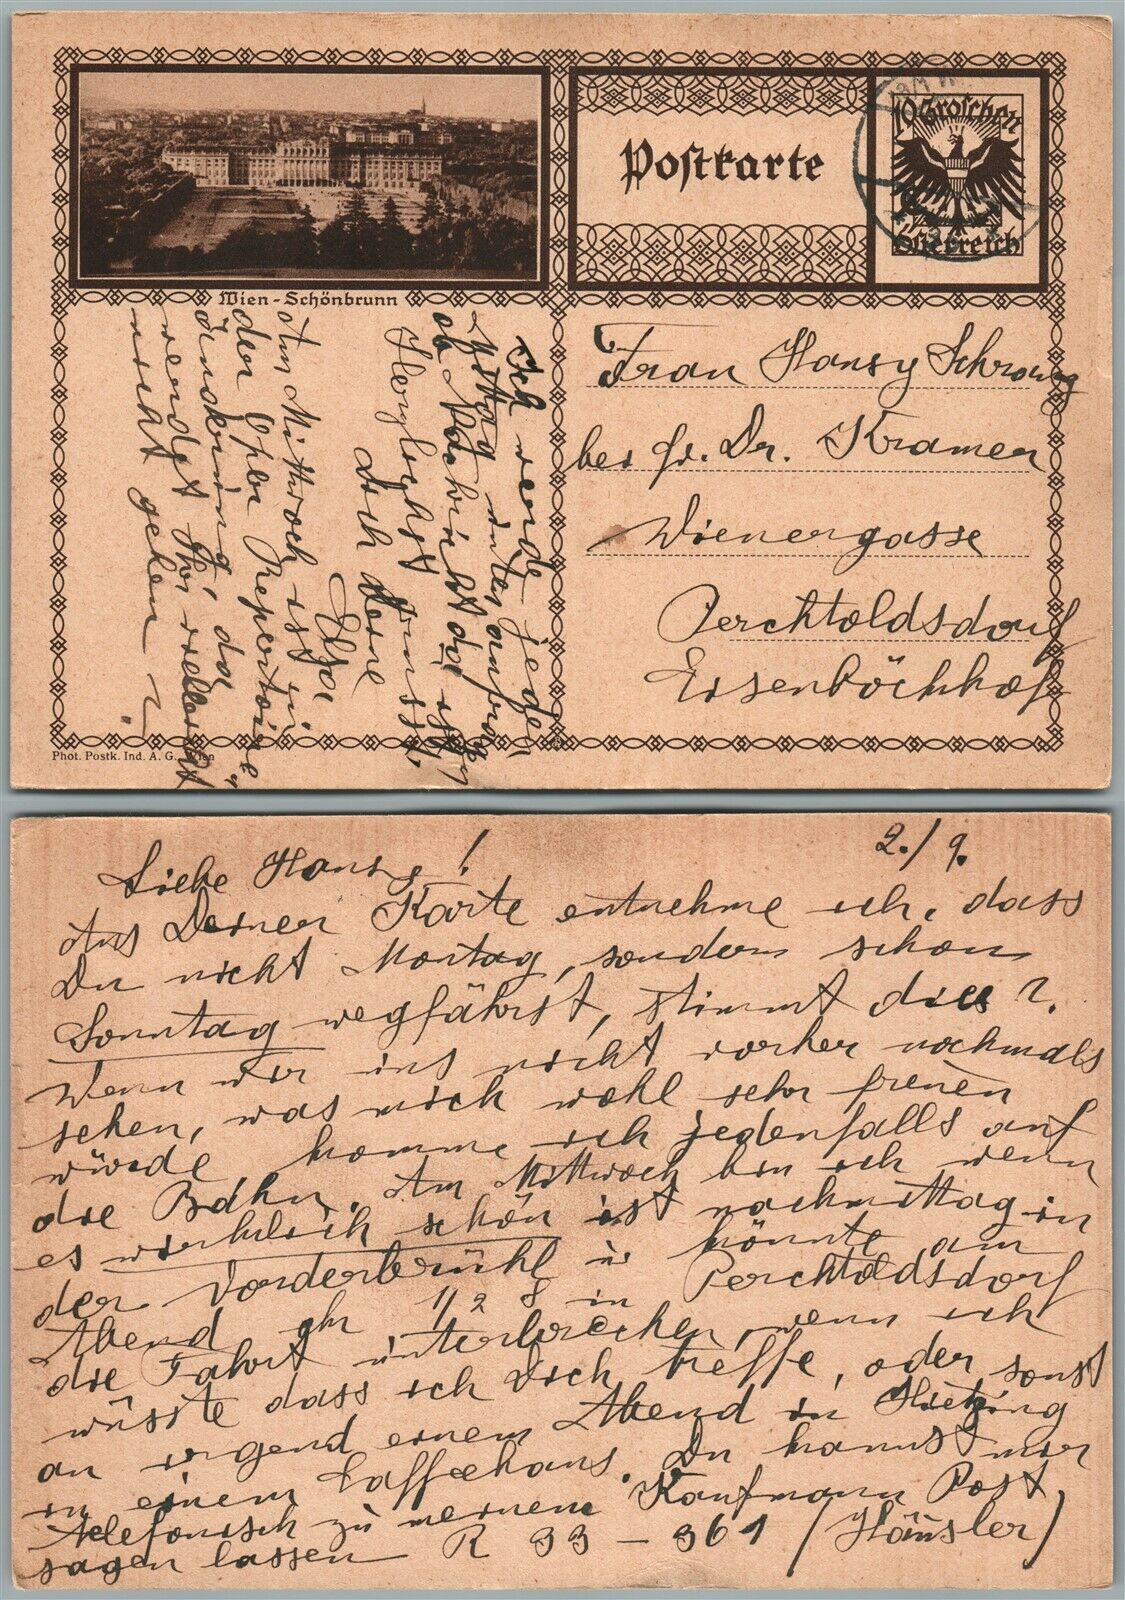 10 Groschen
Postkarte
Österreich
Wien-Schönbrunn
Frau Hansy
bei Fr. Dr. Kramer
Wienergasse
Perchtoldsdorf
Eisenböckhof
Ich werde jeden
Mittag anfragen
ob Nachricht da ist
Herzlichst
Dich Deine
Elsa
Am Mittwoch ist in
der Oper Repertoire
da
wendgt Ihr vielleicht
nicht gehen?
Phot. Postk. Ind. A. G. Wien
2./9.
Liebe Hansy!
Aus Deiner Karte entnehme ich, dass
Du nicht Montag, sondern schon
Sonntag wegfährst, stimmt dies?
Wenn wir uns nicht vorher nochmals
sehen, was mich wohl sehr freuen
würde, komme ich jedenfalls auf
die Bahn. Am Mittwoch bin ich wenn
es wirklich schön ist nachmittag in
der Vorderbrühl u. könnte am
Abend ghr 1/2 8 in Perchtoldsdorf
die Fahrt unterbrechen, wenn ich
wüsste dass ich Dich treffe, oder sonst
an irgend einem Abend in Hietzing
in einem Caffeehaus. Du kannst mir
telefonisch zu meinem Kaufmann Post
sagen lassen R 33-361 /Häusler/